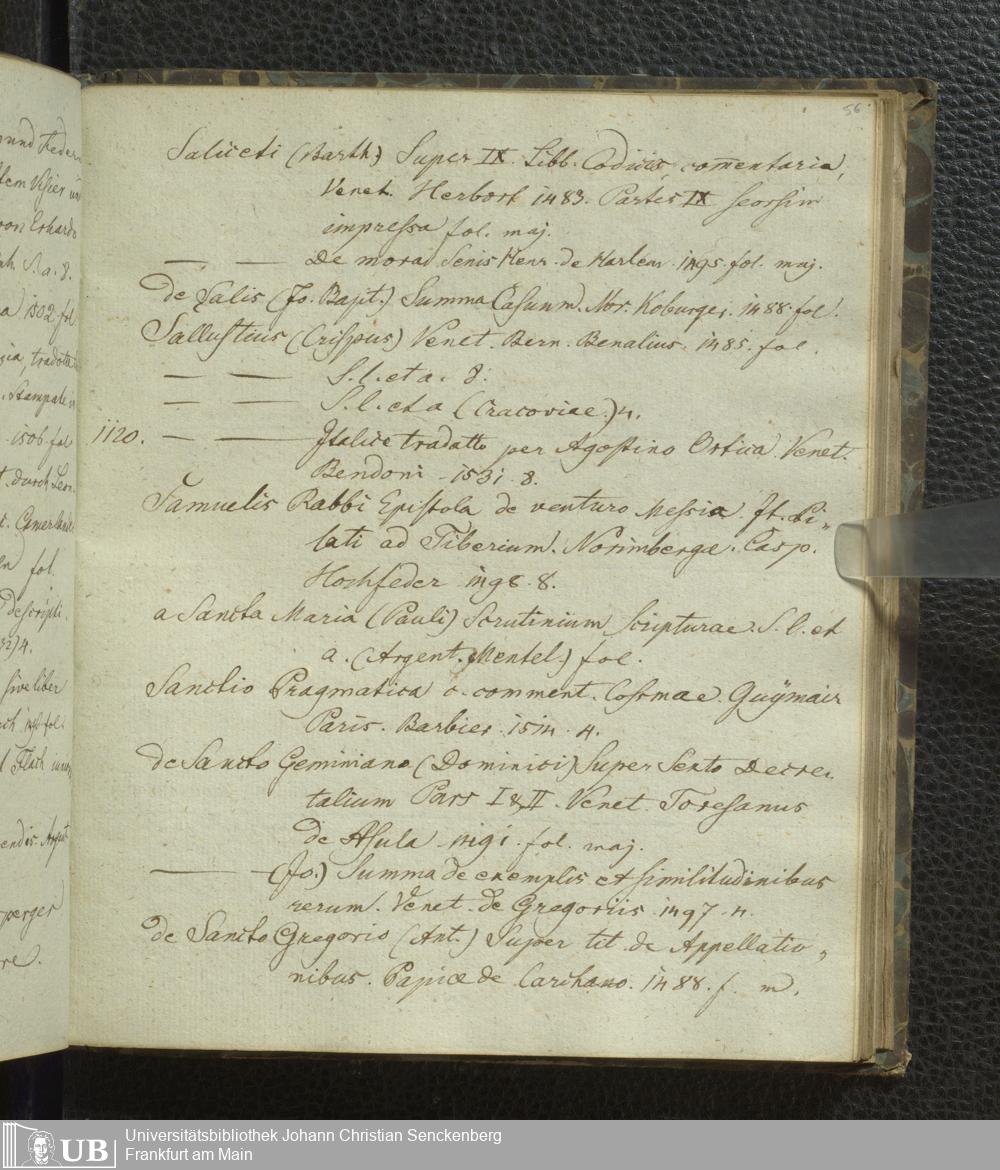 56
Saliceti (Barth.) Super IX. Libb. Codicis, comentaria,
Venet. Herbort 1483. Partes IX seorsim
impressa fol. maj.
— — De mora Senis Henr. de Harlem 1495. fol. maj.
de Salis (Jo. Bapt.) Summa Casuum. Nor. Koburger. 1488. fol.
Sallustius (Crispus) Venet. Bern. Benalius. 1485. fol.
— — S. l. et a. 8.
— — S. l. et a (Cracoviae.) 4.
1120. — — Italice tradatto per Agostino Ortica. Venet.
Bendoni 1531. 8.
Samuelis Rabbi Epistola de venturo Messia. It. Pi-
lati ad Tiberium. Norimbergæ. Casp.
Hochfeder 1498. 8.
a Sancta Maria (Pauli) Scrutinium Scripturae. S. l. et
a. (Argent. Mentel.) fol.
Sanctio Pragmatica c. comment. Cosmae Guÿmair
Paris. Barbier. 1514. 4.
de Sancto Geminiano (Dominici) Super Sexto Decre-
talium Pars I & II. Venet. Toresanus
de Asula 1491. fol. maj.
— (Jo.) Summa de exemplis et similitudinibus
rerum. Venet. de Gregoriis 1497. 4.
de Sancto Gregorio (Ant.) Super tit. de Appellatio-
nibus. Papiæ de Carchano. 1488. f. m.
1502 fol
1506 fol
fol.
sive liber
UB
Universitätsbibliothek Johann Christian Senckenberg
Frankfurt am Main